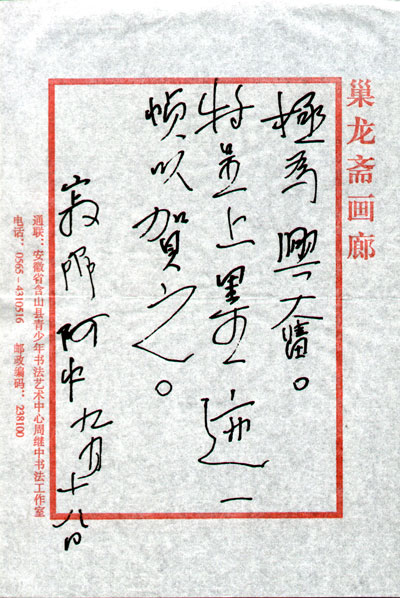 巢龙斋画廊
極為興奮。
特呈上墨迹一
幀以賀之。
寂 阿中九月十八日
通联：安徽省含山县青少年书法艺术中心周继中书法工作室
电话：0565－4310516 邮政编码：238100